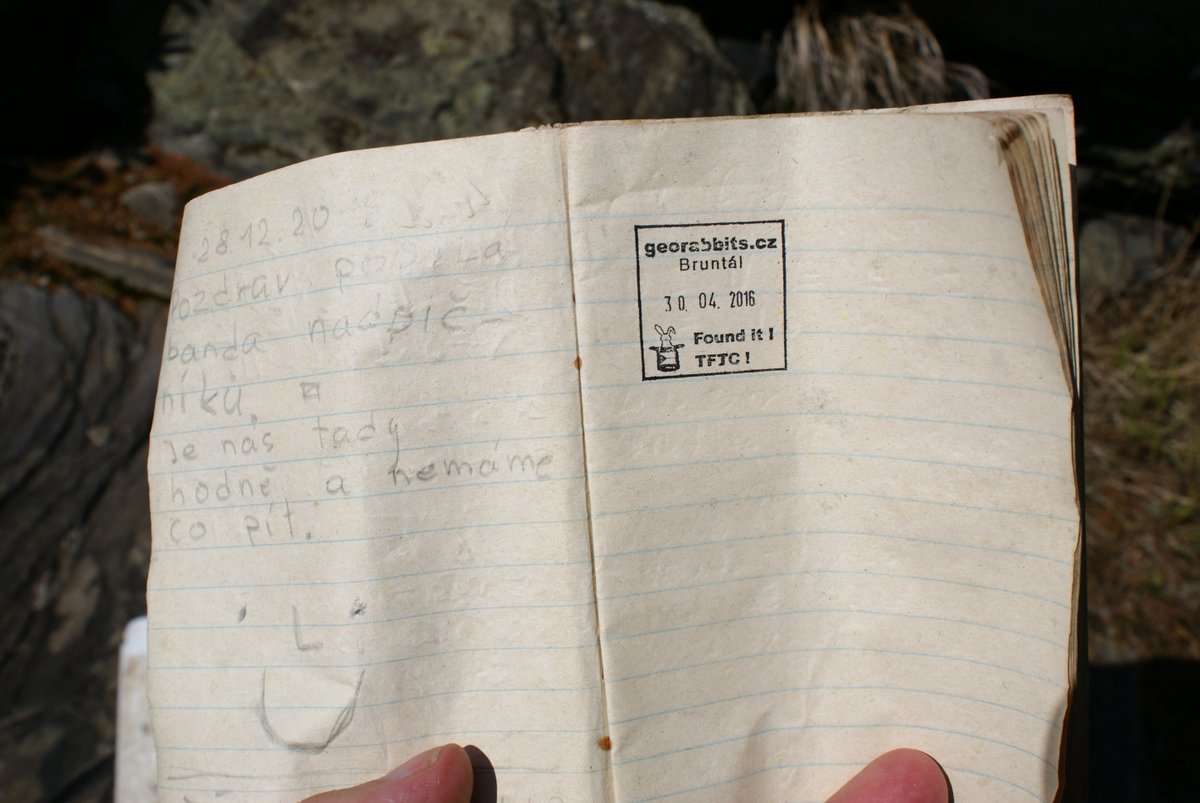 28.12.20
Pozdrav posílá
banda
níků.
Je nás tady
hodně a nemáme
co pít.
georabbits.cz
Bruntál
30. 04. 2016
Found it !
TFTC !